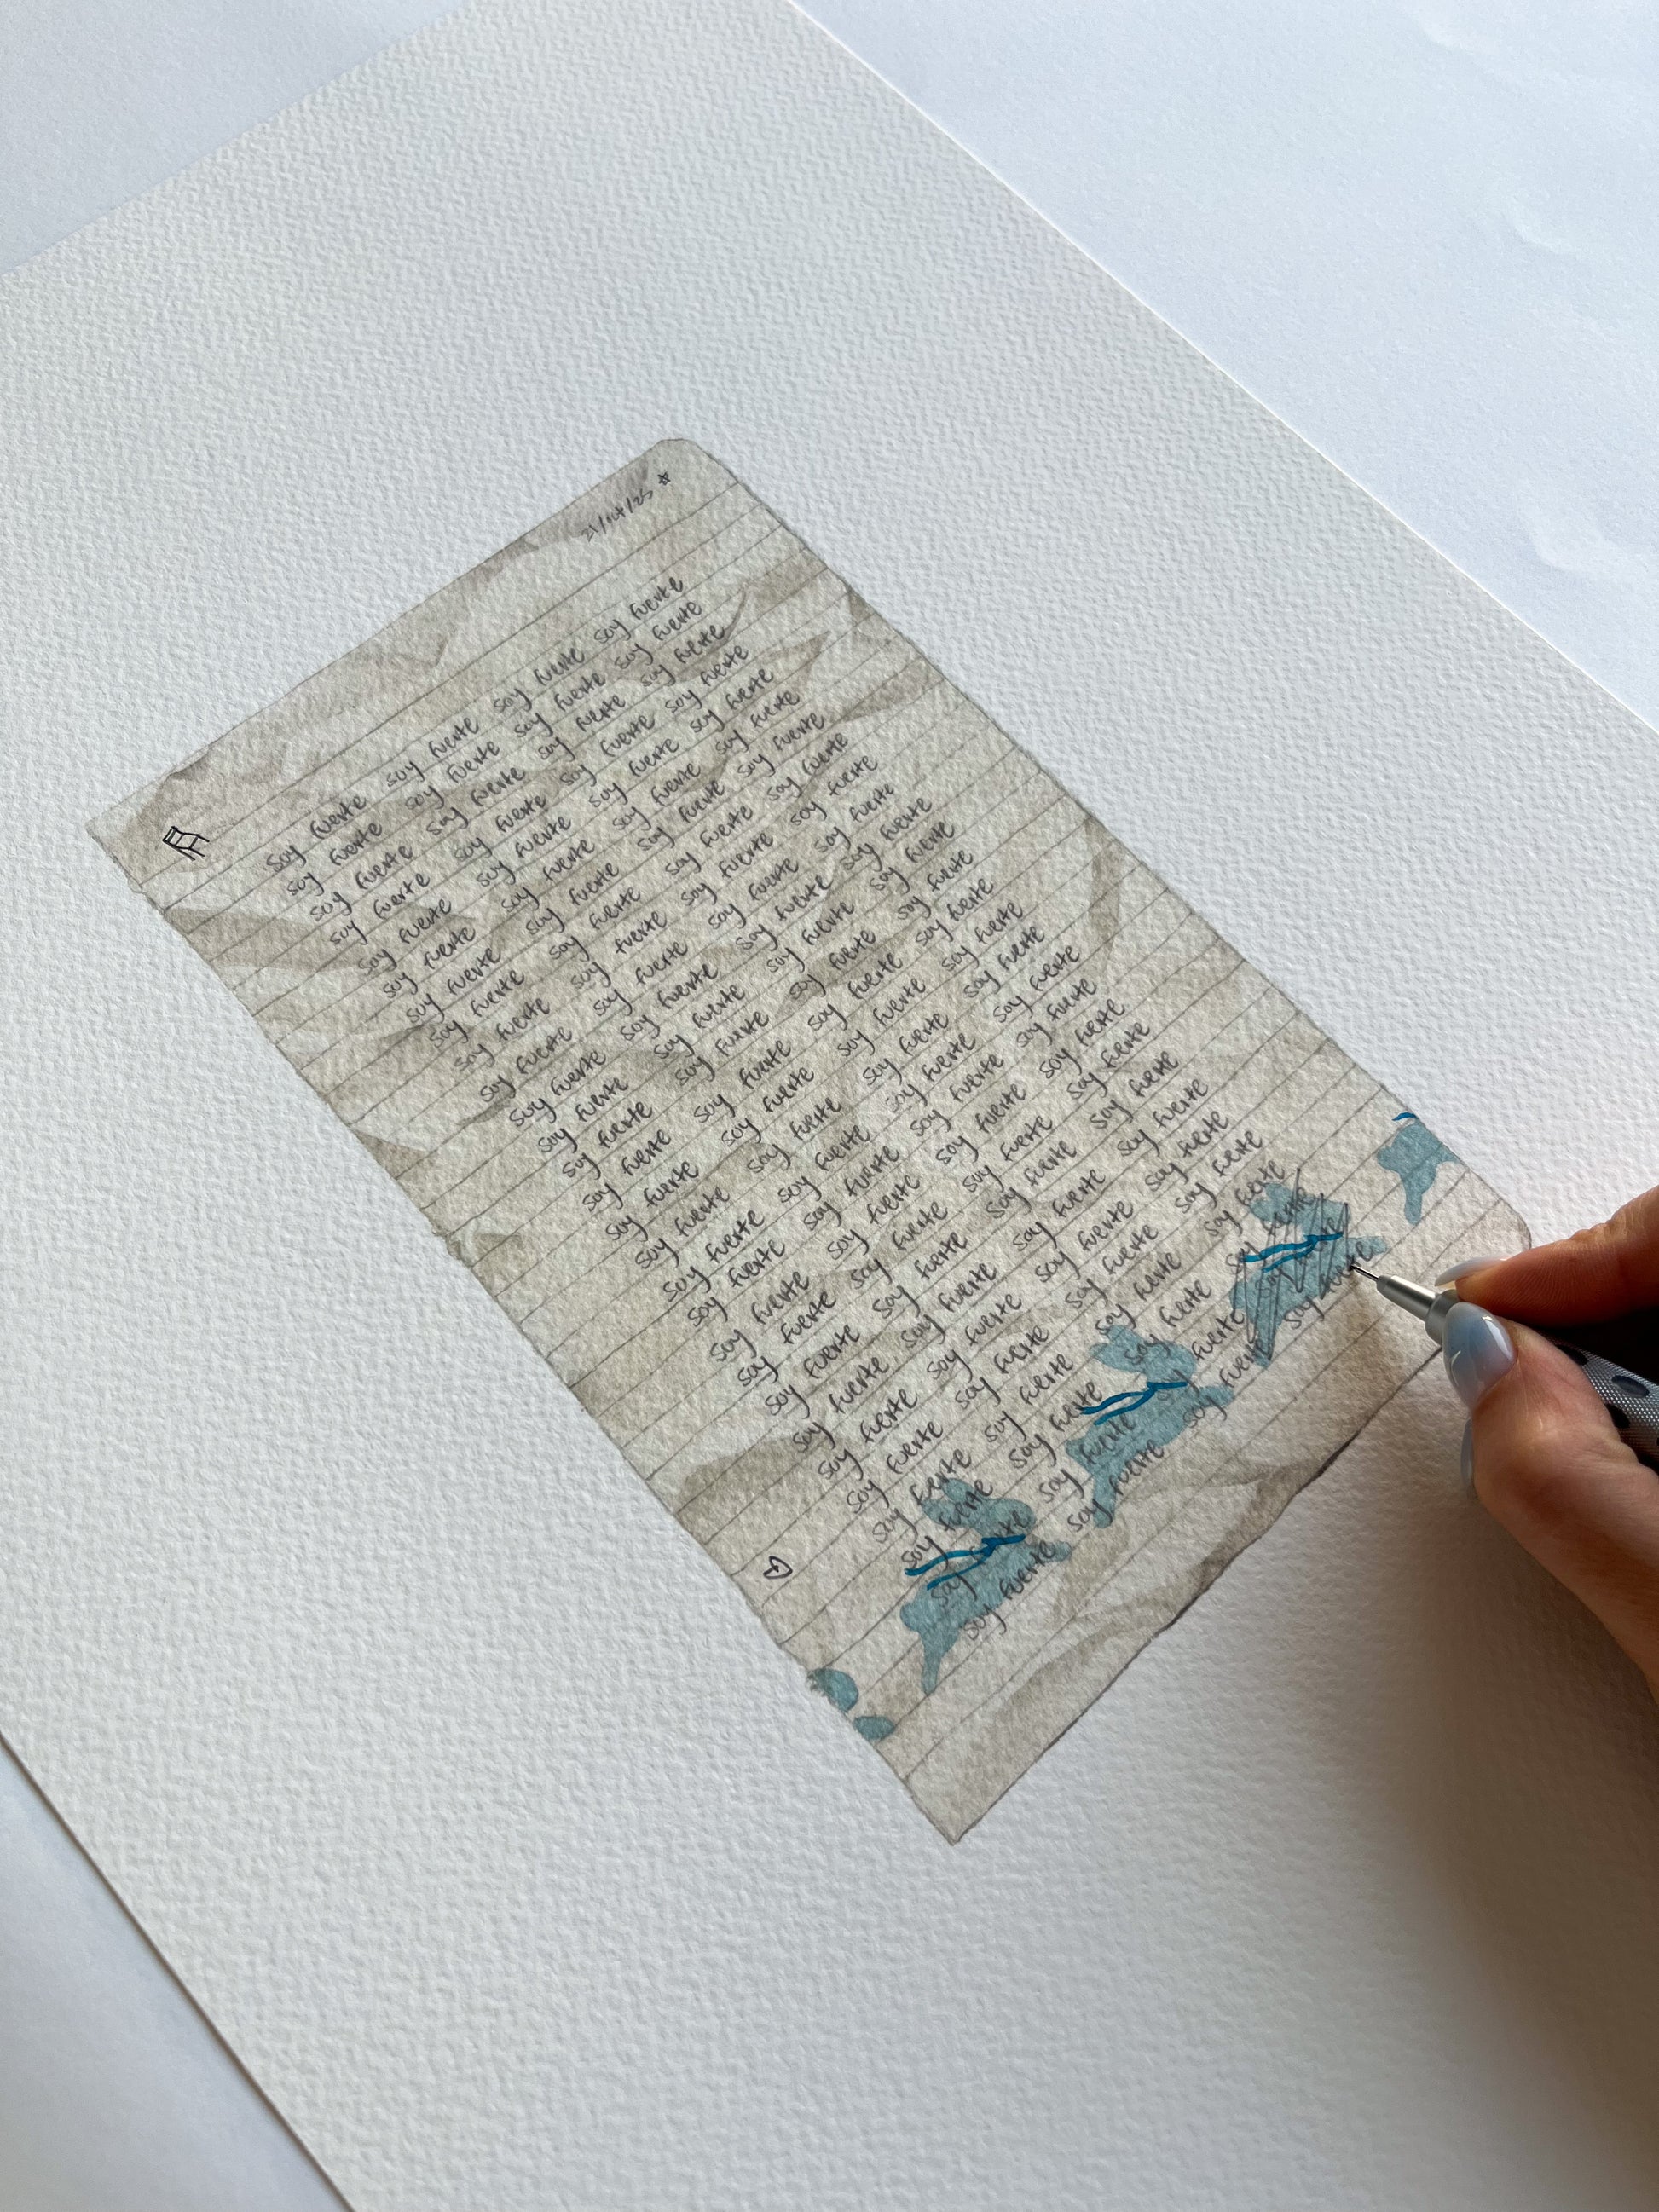 21/04/25
soy fuerte soy fuerte soy fuerte soy fuerte
soy fuerte soy fuerte soy fuerte soy fuerte
soy fuerte soy fuerte soy fuerte soy fuerte
soy fuerte soy fuerte soy fuerte soy fuerte
soy fuerte soy fuerte soy fuerte soy fuerte
soy fuerte soy fuerte soy fuerte soy fuerte
soy fuerte soy fuerte soy fuerte soy fuerte
soy fuerte soy fuerte soy fuerte soy fuerte
soy fuerte soy fuerte soy fuerte soy fuerte
soy fuerte soy fuerte soy fuerte soy fuerte
soy fuerte soy fuerte soy fuerte soy fuerte
soy fuerte soy fuerte soy fuerte soy fuerte
soy fuerte soy fuerte soy fuerte soy fuerte
soy fuerte soy fuerte soy fuerte soy fuerte
soy fuerte soy fuerte soy fuerte soy fuerte
soy fuerte soy fuerte soy fuerte soy fuerte
soy fuerte soy fuerte soy fuerte soy fuerte
soy fuerte soy fuerte soy fuerte soy fuerte
soy fuerte soy fuerte soy fuerte soy fuerte
soy fuerte soy fuerte soy fuerte soy fuerte
soy fuerte soy fuerte soy fuerte soy fuerte
soy fuerte soy fuerte soy fuerte soy fuerte
soy fuerte soy fuerte soy fuerte soy fuerte
soy fuerte soy fuerte soy fuerte soy fuerte
soy fuerte soy fuerte soy fuerte soy fuerte
soy fuerte soy fuerte soy fuerte soy fuerte
soy fuerte soy fuerte soy fuerte soy fuerte
soy fuerte soy fuerte soy fuerte soy fuerte